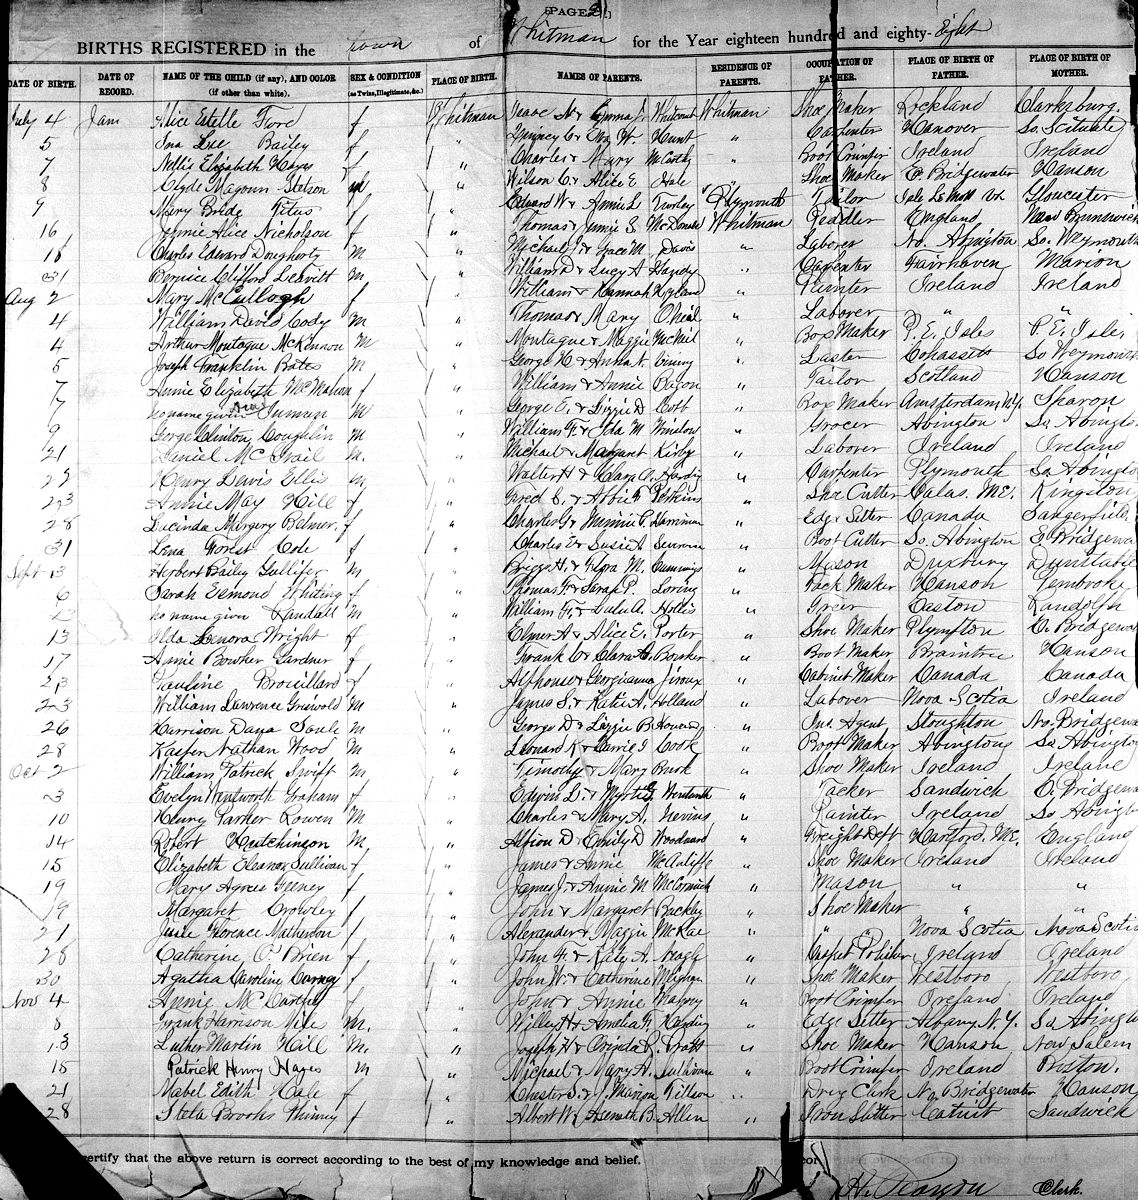 [PAGE 2.]
BIRTHS REGISTERED in the town of Whitman for the Year eighteen hundred and eighty-eight
DATE OF BIRTH. DATE OF RECORD. NAME OF THE CHILD (if any), AND COLOR (if other than white). SEX & CONDITION (as Twins, Illegitimate, &c.) PLACE OF BIRTH. NAMES OF PARENTS. RESIDENCE OF PARENTS. OCCUPATION OF FATHER. PLACE OF BIRTH OF FATHER. PLACE OF BIRTH OF MOTHER.
July 4 Jan Alice Estelle Ford f Whitman Isaac N & Emma J. Whitman Shoe Maker Rockland Clarksburg.
5 Ina Lee Bailey f " Quincy C & Eva W. Hunt " Carpenter Hanover So. Scituate
7 Nellie Elizabeth Hayes f " Charles & Mary McCarthy " Boot Crimper Ireland Ireland
8 Clyde Magoun Stetson " Wilson C. & Alice E. Hale " Shoe Maker E Bridgewater Hanson
9 Mary Bride Titus f " Edward W & Annie L. Plymouth Tailor Gloucester
16 Jennie Alice Nicholson f " Thomas & Jennie S. McDonald Whitman Peddler England New Brunswick
18 Charles Edward Dougherty m " Michael J & Grace M. Davis " Laborer No. Abington So. Weymouth
31 Bernice Clifford Leavitt m " William D & Lucy A Handy " Carpenter Fairhaven Marion
Aug 2 Mary McCullogh f " William & Hannah Hyland " Painter Ireland Ireland
4 William David Cody m " Thomas & Mary O'Neil " Laborer " "
4 Arthur Montague McKinnon m " Montague & Maggie McNeil " Box Maker P. E. Isle P. E. Isle
5 Joseph Franklin Bates m " George H & Anna A. Vining " Laster Cohassett So Weymouth
7 Annie Elizabeth McMahon f " William & Annie Bacon " Tailor Scotland Hanson
7 no name given Inman m " George E. & Lizzie D Cobb " Box Maker Amsterdam, N.Y. Sharon
9 George Clinton Coughlin m " William F. & Ida M Winslow " Grocer Abington So Abington
21 Daniel McGrail m. " Michael & Margaret Kirby " Laborer Ireland Ireland
22 Henry Davis Ellis m " Walter H & Clara A. Harding " Carpenter Plymouth So Abington
23 Annie May Hill f " Fred E. & Abbie F Perkins " Shoe Cutter Calais. ME. Kingston
28 Lucinda Margery Belmer. f " Charles G & Minnie P. Harriman " Edge Setter Canada Sangerfield
31 Lena Forest Cole f " Charles E & Susie A " Boot Cutter So. Abington E Bridgewa
Sept 3 Herbert Bailey Gullifer m " Briggs H. & Flora M. Cummings " Mason Duxbury Dunstable
6 Sarah Esmond Whiting f " Thomas F & Sarah P. Loring " Tack Maker Hanson Pembroke
no name given Randall m " William F. & Lulu A. Hollis " Easton Randolph
13 Alda Lenora Wright f " Elmer A & Alice E. Porter " Shoe Maker Plympton E. Bridgewa
17 Annie Bowker Gardner f " Frank C & Clara A. Bowker " Boot Maker Braintree Hanson
23 Pauline Brouillard f " Alphonse & Georgianna Giroux " Cabinet Maker Canada Canada
23 William Lawrence Griswold m " James S. & Katie A. Holland " Laborer Nova Scotia Ireland
26 Harrison Dana Soule m " George D & Lizzie B Howard " Ins. Agent Stoughton No. Bridgewa
28 Kasper Nathan Wood m " Leonard K & Carrie J Cook " Boot Maker Abington So Abington
Oct 2 William Patrick Swift m " Timothy & Mary Burk " Shoe Maker Ireland Ireland
3 Evelyn Wentworth Graham f " Edwin L. & Myrtie G. Wentworth " Tacker Sandwich E. Bridgewa
10 Henry Parker Lowen m " Charles & Mary A. Nevins " Painter Ireland So Abington
14 Robert Hutchinson m " Albion D & Emily D Woodward " Freight Dept Hartford, ME. England
15 Elizabeth Eleanor Sullivan f " James & Annie McAuliff " Shoe Maker Ireland Ireland
19 Mary Agnes Feeney f " James J. & Annie M McCormick " Mason " "
19 Margaret Crowley f " John & Margaret Buckley " Shoe Maker " "
21 Jessie Florence Matheson f " Alexander & Maggie McRae " " Nova Scotia Nova Scotia
28 Catherine O'Brien f " John F. & Kate A. Neagle " Ireland Ireland
30 Agatha Caroline Carney f " John W. & Catherine " Shoe Maker Westboro Westboro
Nov 4 Annie McCarthy f " John & Annie " Boot Crimper Ireland Ireland
8 Frank Harrison Vile m. " Willey H & Amelia F. Harding " Edge Setter Albany N. Y. So Abington
13 Luther Martin Hill m. " Joseph H & Orinda R. Pratt " Shoe Maker Hanson New Salem
15 Patrick Henry Hayes m " Michael & Mary A. Sullivan " Boot Crimper Ireland Boston.
21 Mabel Edith Hale f " Chester S. & J. Marion Tillson " Drug Clerk No Bridgewater Hanson
28 Stela Brooks Phinney f " Albert W. & Aseneth B. Allen " Iron Cutter Cotuit Sandwick
certify that the above return is correct according to the best of my knowledge and belief.
Pearson Clerk.